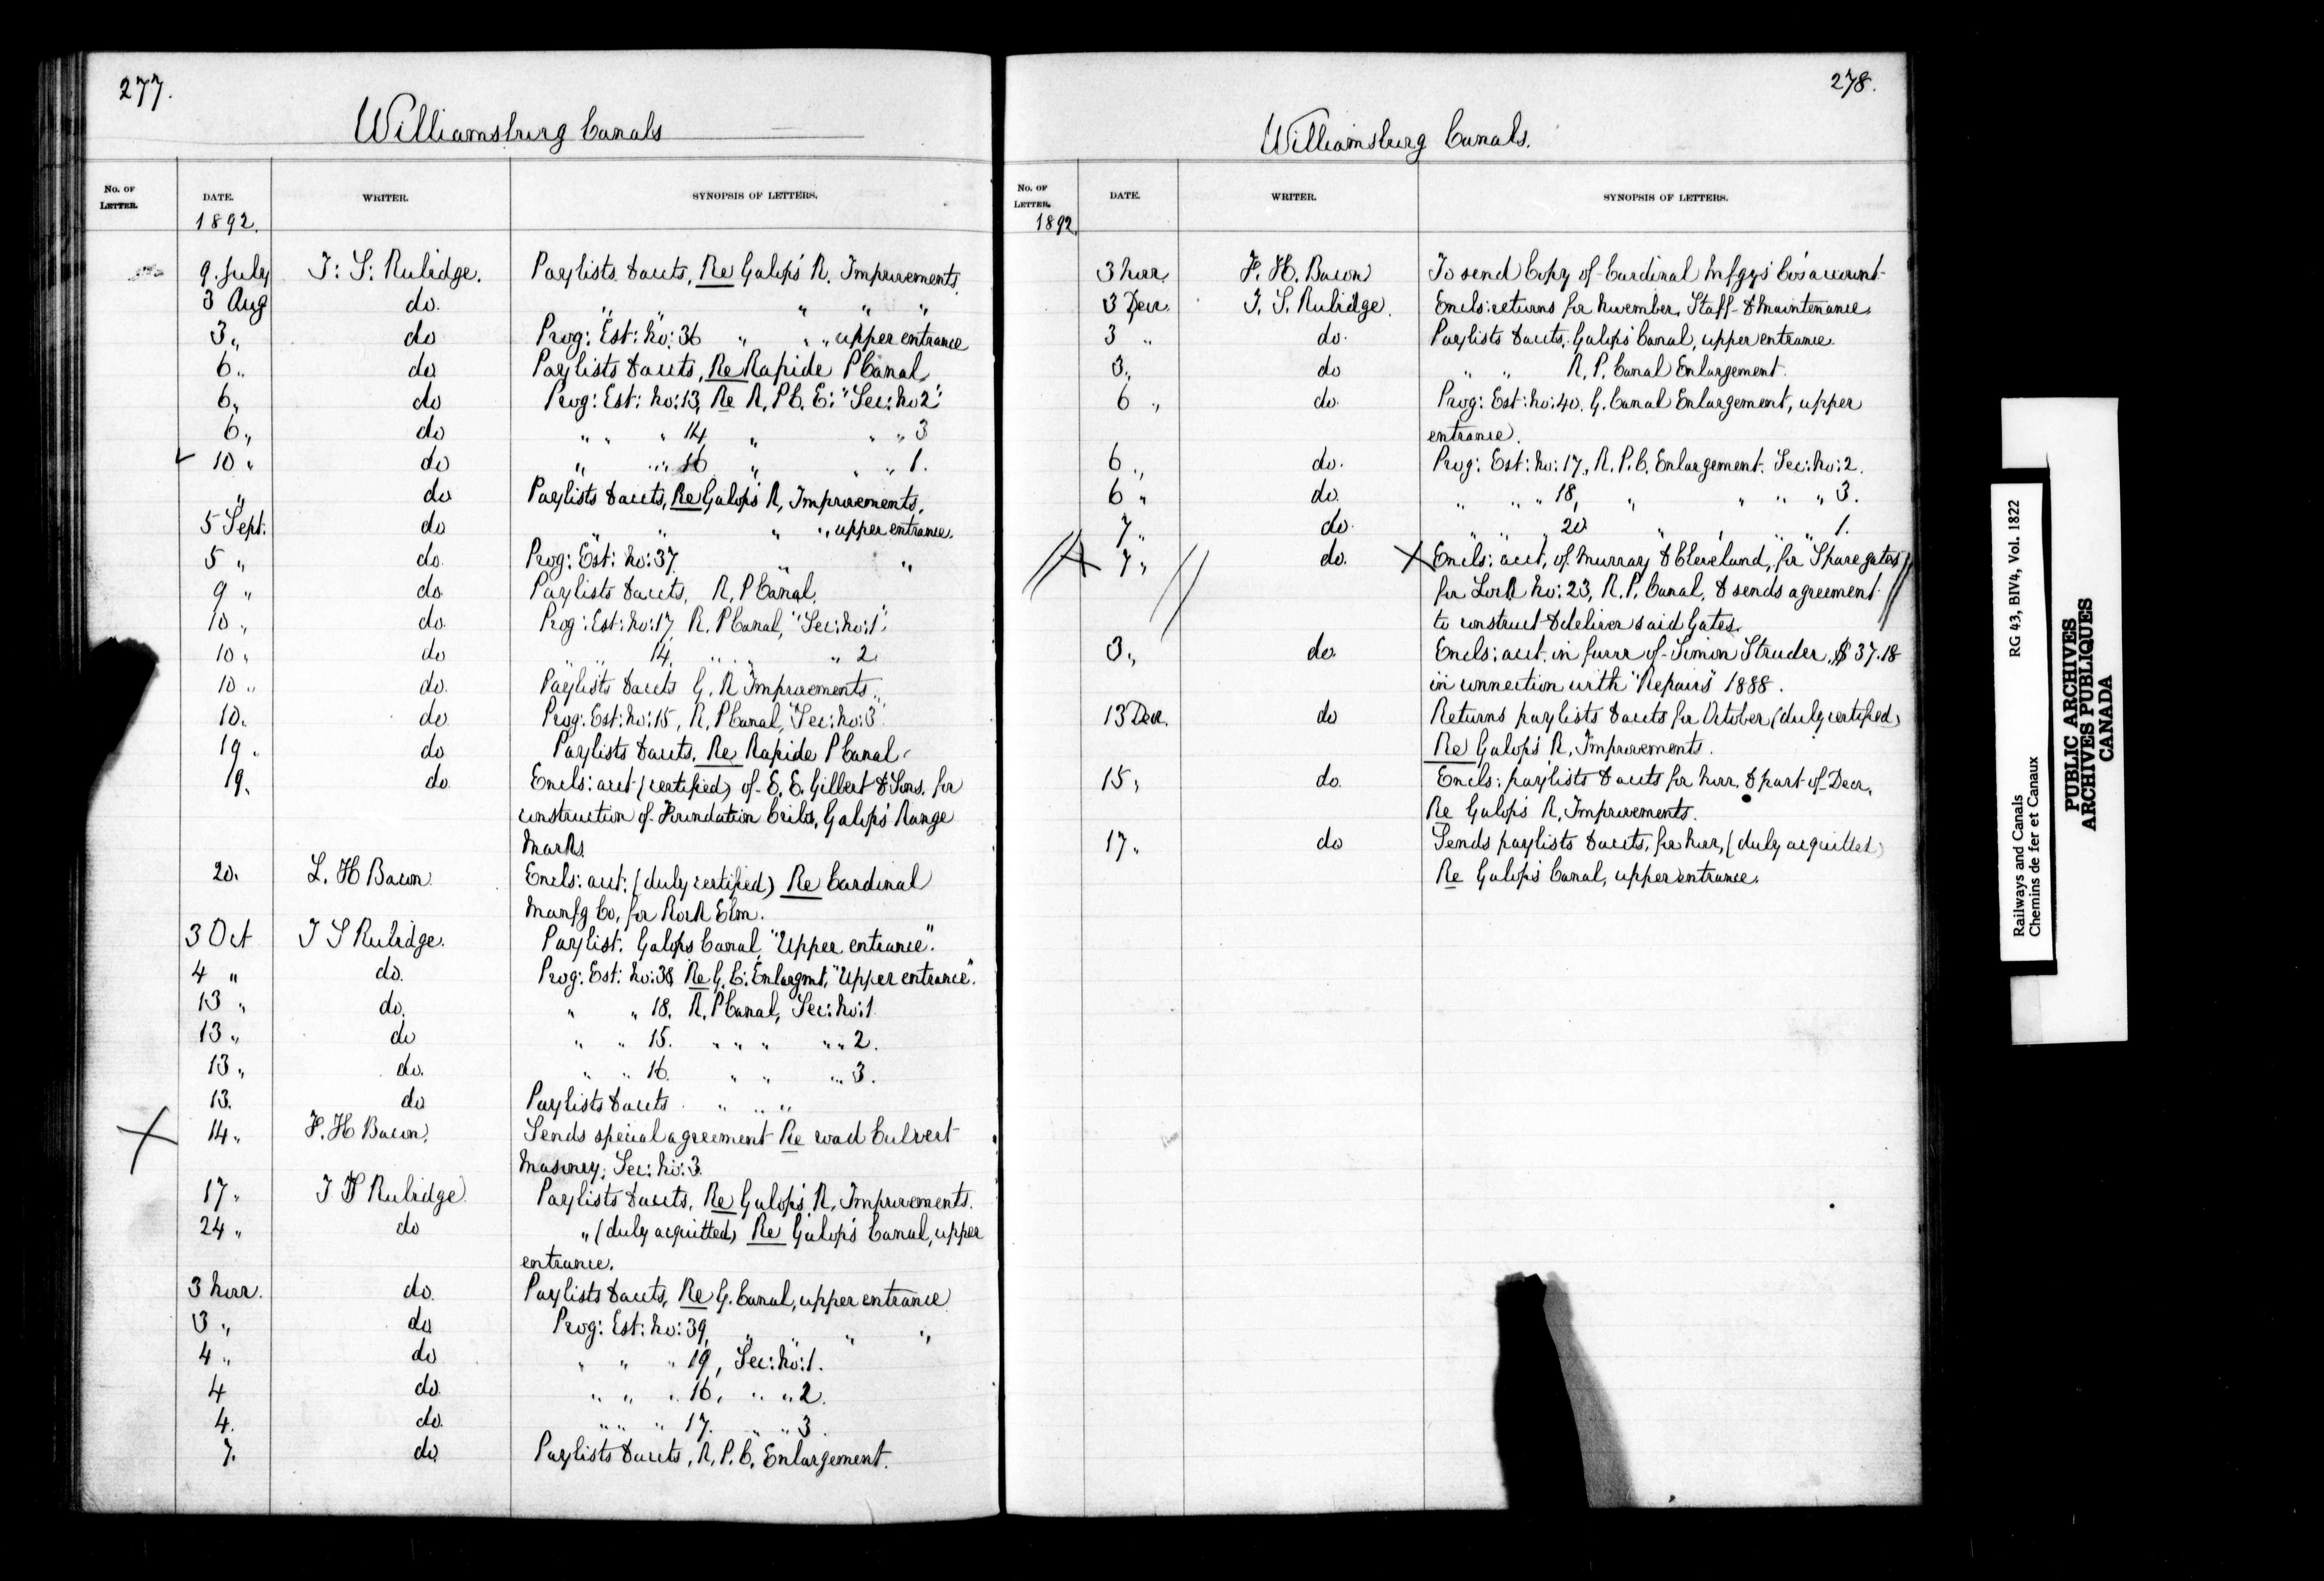 277.
Williamsburg Canals
No. OF LETTER. DATE. WRITER. SYNOPSIS OF LETTERS.
1892.
9. July T: S: Rubidge. Paylists & accts, Re Galops R. Improvements.
3 Aug do. " " " "
3 " do Prog: Est: No: 36 " " " upper entrance
6 " do Paylists & accts, Re Rapide P Canal
6 " do Prog: Est: No: 13, Re R. P C. E: "Sec: No 2"
6 " do " " " 14, " " " 3
10 " do " " " 16 " " " 1.
" do Paylists & accts, Re Galops R, Improvements,
5 Sept. do " " " ", upper entrance.
5 " do. Prog: Est: No: 37. " "
9 " do Paylists & accts, R. P Canal.
10 " do. Prog: Est: No: 17, R. P Canal, "Sec: No: 1".
10 " do " " 14, " " " 2
10 " do. Paylists & accts G. R Improvements.
10. do. Prog: Est: No: 15, R. P Canal, "Sec: No: 3"
19 " do Paylists & accts, Re Rapide P Canal
19. do. Encls: acct (certified) of E. E. Gilbert & Sons, for
construction of Foundation Cribs, Galops Range
Marks.
20. L. H Bacon. Encls: acct: (duly certified) Re Cardinal
Manfg Co, for Rock Elm.
3 Oct T S Rubidge. Paylist. Galops Canal, "Upper entrance".
4 " do. Prog: Est: No: 38, Re G. C: Enlargmt, "Upper entrance".
13 " do. " " 18. R. P Canal, Sec: No: 1.
13 " do " " 15. " " " " " 2.
13 " do. " " 16. " " " " 3.
13. do Paylists & accts " " "
14 " F. H Bacon. Sends special agreement Re road Culvert
Masonry, Sec: No: 3.
17 " T S Rubidge. Paylists & accts, Re Galops R. Improvements.
24 " do " (duly acquitted) Re Galops Canal, upper
entrance.
3 Novr. do. Paylists & accts, Re G. Canal, upper entrance
3 " do Prog: Est: No: 39, " " " "
4 " do " " " 19, Sec: No: 1.
4 do. " " " 16. " " 2.
4. do. " " " 17. " " 3.
7. do. Paylists & accts, R. P. C. Enlargement.
278.
Williamsburg Canals.
No. OF LETTER. DATE. WRITER. SYNOPSIS OF LETTERS.
1892.
3 Novr. F. H. Bacon To send Copy of Cardinal Mnfgy's Co's account
3 Decr. T. S. Rubidge. Encls: returns for November, Staff & Maintenance.
3 " do. Paylists & accts, Galops Canal, upper entrance.
3 " do " " R. P. Canal Enlargement.
6 " do. Prog: Est: No: 40. G. Canal Enlargement, upper
entrance.
6 " do. Prog: Est: No: 17, R. P. C. Enlargement. Sec: No: 2.
6 " do. " " " 18, " " " " 3.
7 " do. " " " 20 " " " 1.
7 " do. Encls: acct, of Murray & Cleveland, for Spare gates
for Lock No: 23, R. P. Canal, & sends agreement
to construct & deliver said Gates.
3 " do. Encls: acct. in favor of Simon Struder, $37.18
in connection with "Repairs" 1888.
13 Decr. do Returns paylists & accts for October (duly certified)
Re Galops R, Improvements.
15 " do. Encls: paylists & accts for Novr, & part of Decr,
Re Galops R, Improvements.
17 " do Sends paylists & accts, for Novr, (duly acquitted)
Re Galops Canal, upper entrance.
Railways and Canals RG 43, BIV4, Vol. 1822
Chemins de fer et Canaux
PUBLIC ARCHIVES
ARCHIVES PUBLIQUES
CANADA